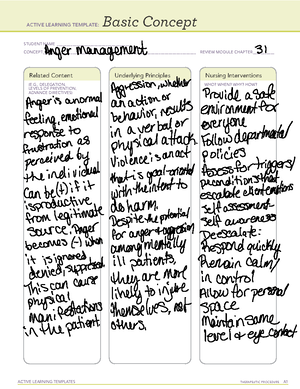 ACTIVE LEARNING TEMPLATE: Basic Concept
STUDENT NAME
CONCEPT Anger management REVIEW MODULE CHAPTER 31
Related Content
(E.G., DELEGATION,
LEVELS OF PREVENTION,
ADVANCE DIRECTIVES)
Anger is a normal
feeling, emotional
response to
frustration as
perceived by
the individual
Can be (+) if it
is productive
from legitimate
source. Anger
becomes (-) when
it is ignored
denied, suppressed
This can cause
physical
manifestations
in the patient
Underlying Principles
Aggression, whether
an action or
behavior, results
in a verbal or
physical attack.
Violence is an act
that is goal oriented
with the intent to
do harm.
Despite the potential
for anger + aggression
among mentally
ill patients,
they are more
likely to injure
themselves, not
others.
Nursing Interventions
WHO? WHEN? WHY? HOW?
Provide a safe
environment for
everyone
Follow departmental
policies
Assess for triggers/
preconditions that
escalate client emotions
Self assessment
Self awareness
Deescalate:
Respond quickly
Remain calm/
in control
Allow for personal
space
Maintain same
level & eye contact
ACTIVE LEARNING TEMPLATES
THERAPEUTIC PROCEDURE A1